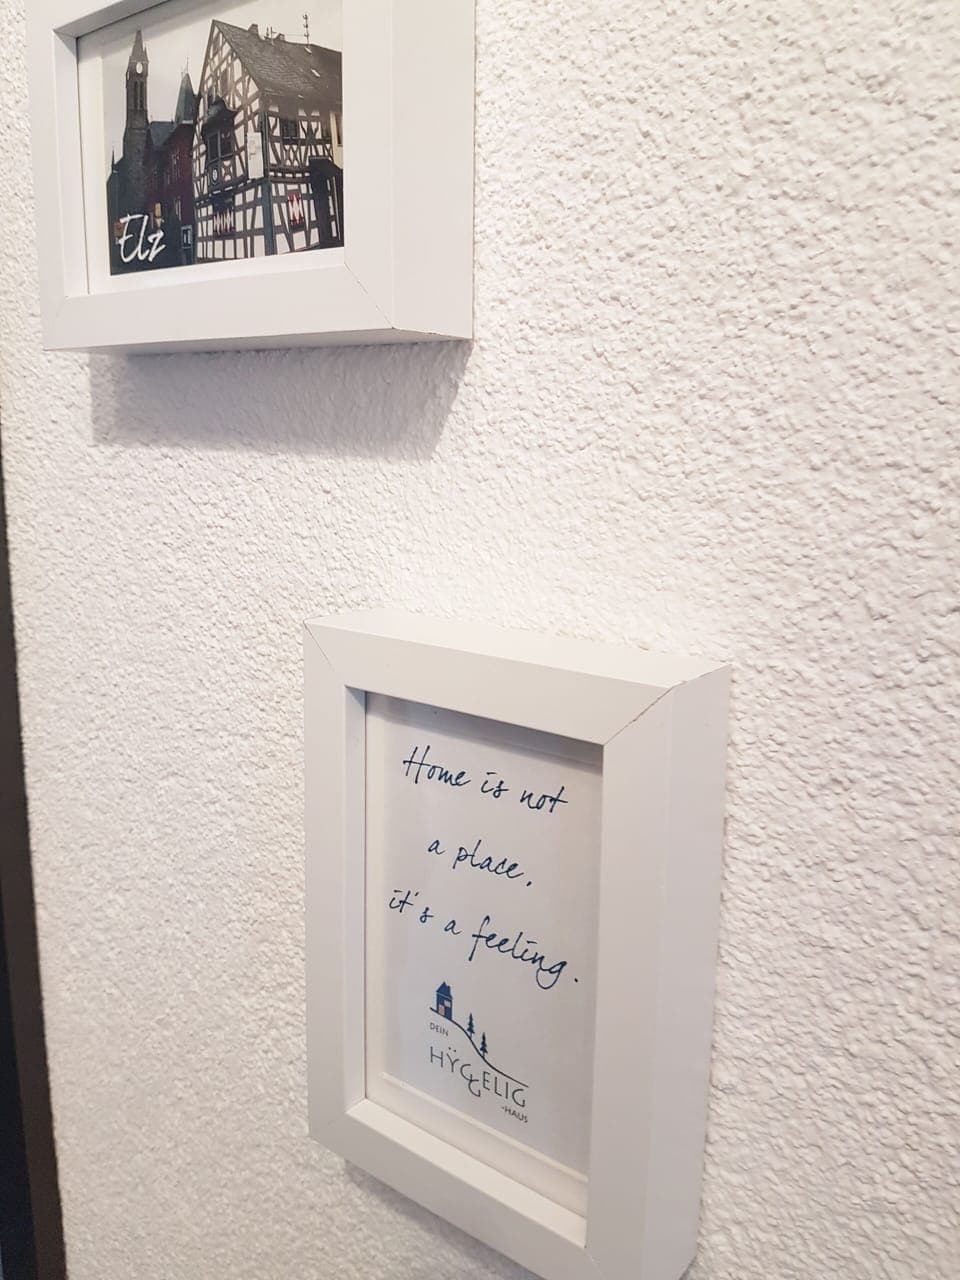 Elz
Home is not
a place,
it's a feeling.
DEIN
HŸGGELIG
-HAUS